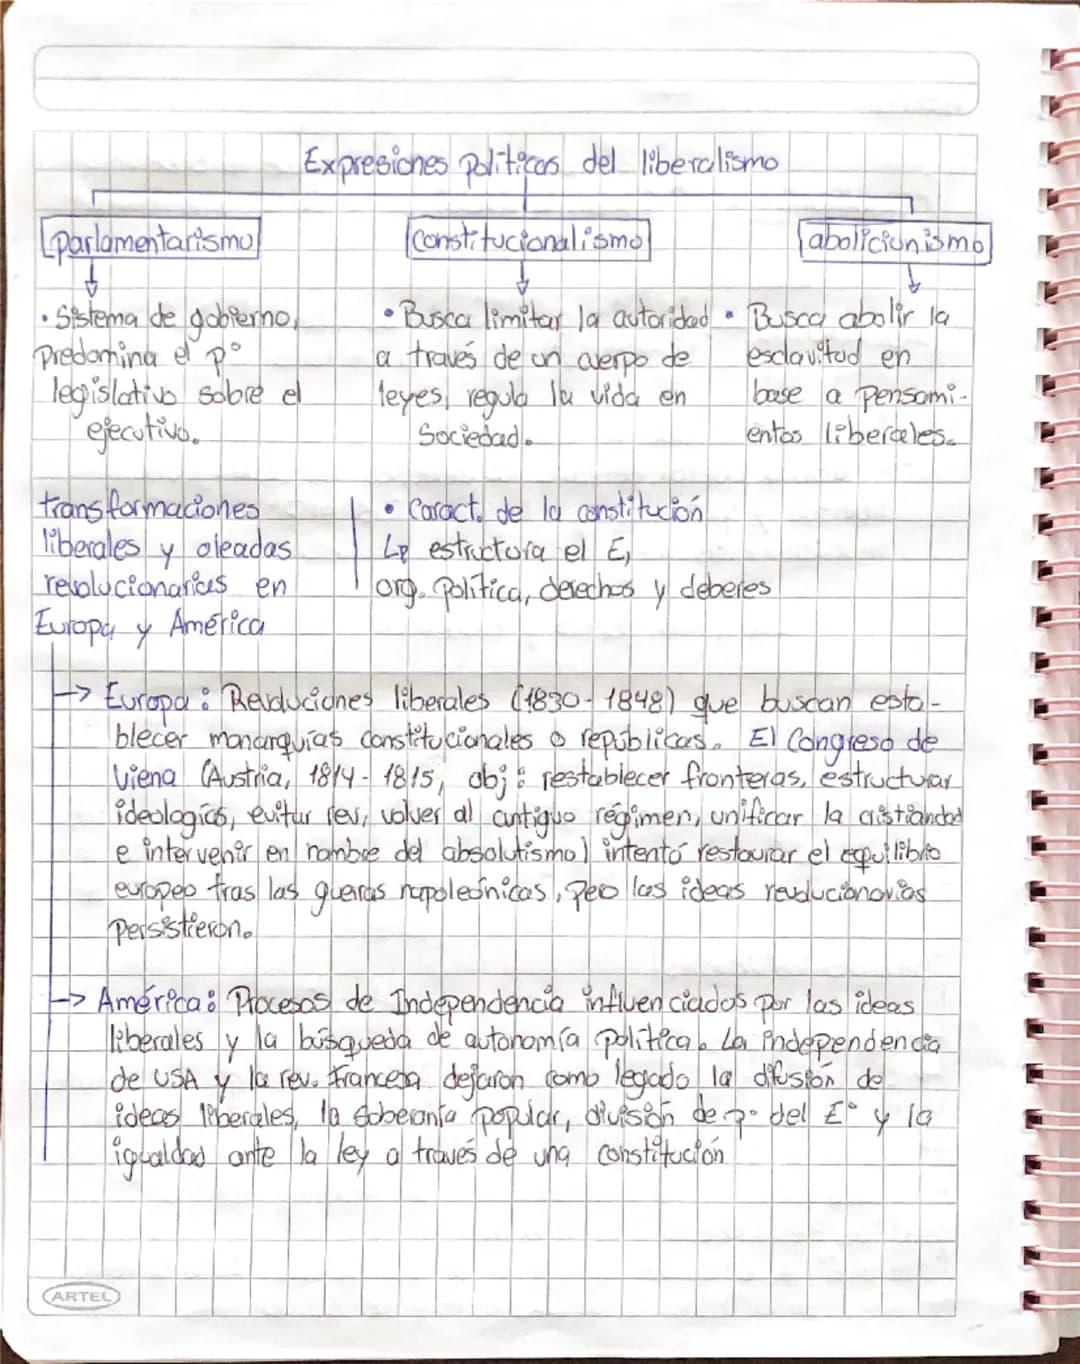 Expresiones políticas del liberalismo
parlamentarismo
constitucionalismo
abolicionismo
• Sistema de gobierno,
Predomina el p°
legislativo sobre el
ejecutivo.
• Busca limitar la autoridad
a través de un cuerpo de
leyes, regula la vida en
Sociedad.
• Busca abolir la
esclavitud en
base a pensami-
entos liberales.
transformaciones
liberales y oleadas
revolucionarias en
Europa y América
• Caract. de la constitución
↳ estructura el E,
org. política, derechos y deberes
→ Europa: Revoluciones liberales (1830-1848) que buscan esta-
blecer monarquías constitucionales o repúblicas. El Congreso de
Viena (Austria, 1814-1815, obj: restablecer fronteras, estructurar
ideologías, evitar rev, volver al antiguo régimen, unificar la cristiandad
e intervenir en nombre del absolutismo) intentó restaurar el equilibrio
europeo tras las guerras napoleónicas, pero las ideas revolucionarias
Persistieron.
→ América: Procesos de Independencia influenciados por las ideas
liberales y la búsqueda de autonomía política. La independencia
de USA y la rev. francesa dejaron como legado la difusión de
ideas liberales, la soberanía popular, división de p° del E° y la
igualdad ante la ley a través de una constitución
ARTEL